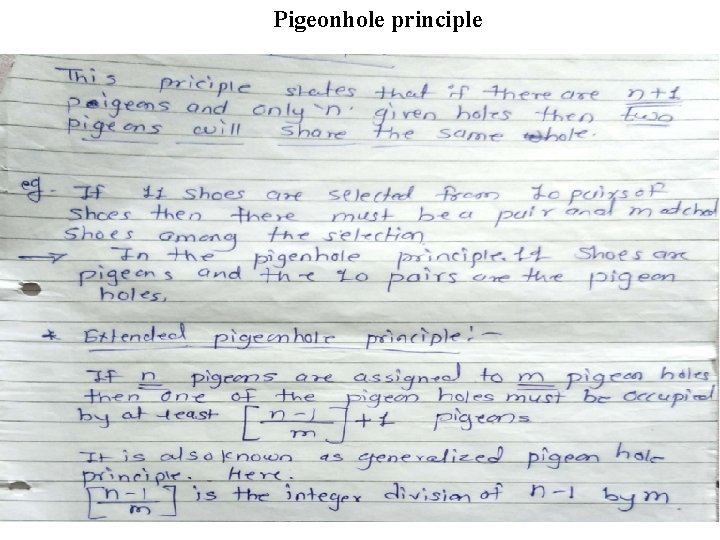 Pigeonhole principle
This priciple states that if there are n+1
peigeons and only 'n' given holes then two
pigeons will share the same hole.
eg. If 11 shoes are selected from 10 pairs of
shoes then there must be a pair and matched
shoes among the selection
→ In the pigenhole principle. 11 shoes are
pigeons and the 10 pairs are the pigeon
holes.
* Extended pigeonhole principle:-
If n pigeons are assigned to m pigeon holes
then one of the pigeon holes must be occupied
by at least [n-1/m]+1 pigeons
It is also known as generalized pigeon hole
principle. Here.
[n-1/m] is the integer division of n-1 by m